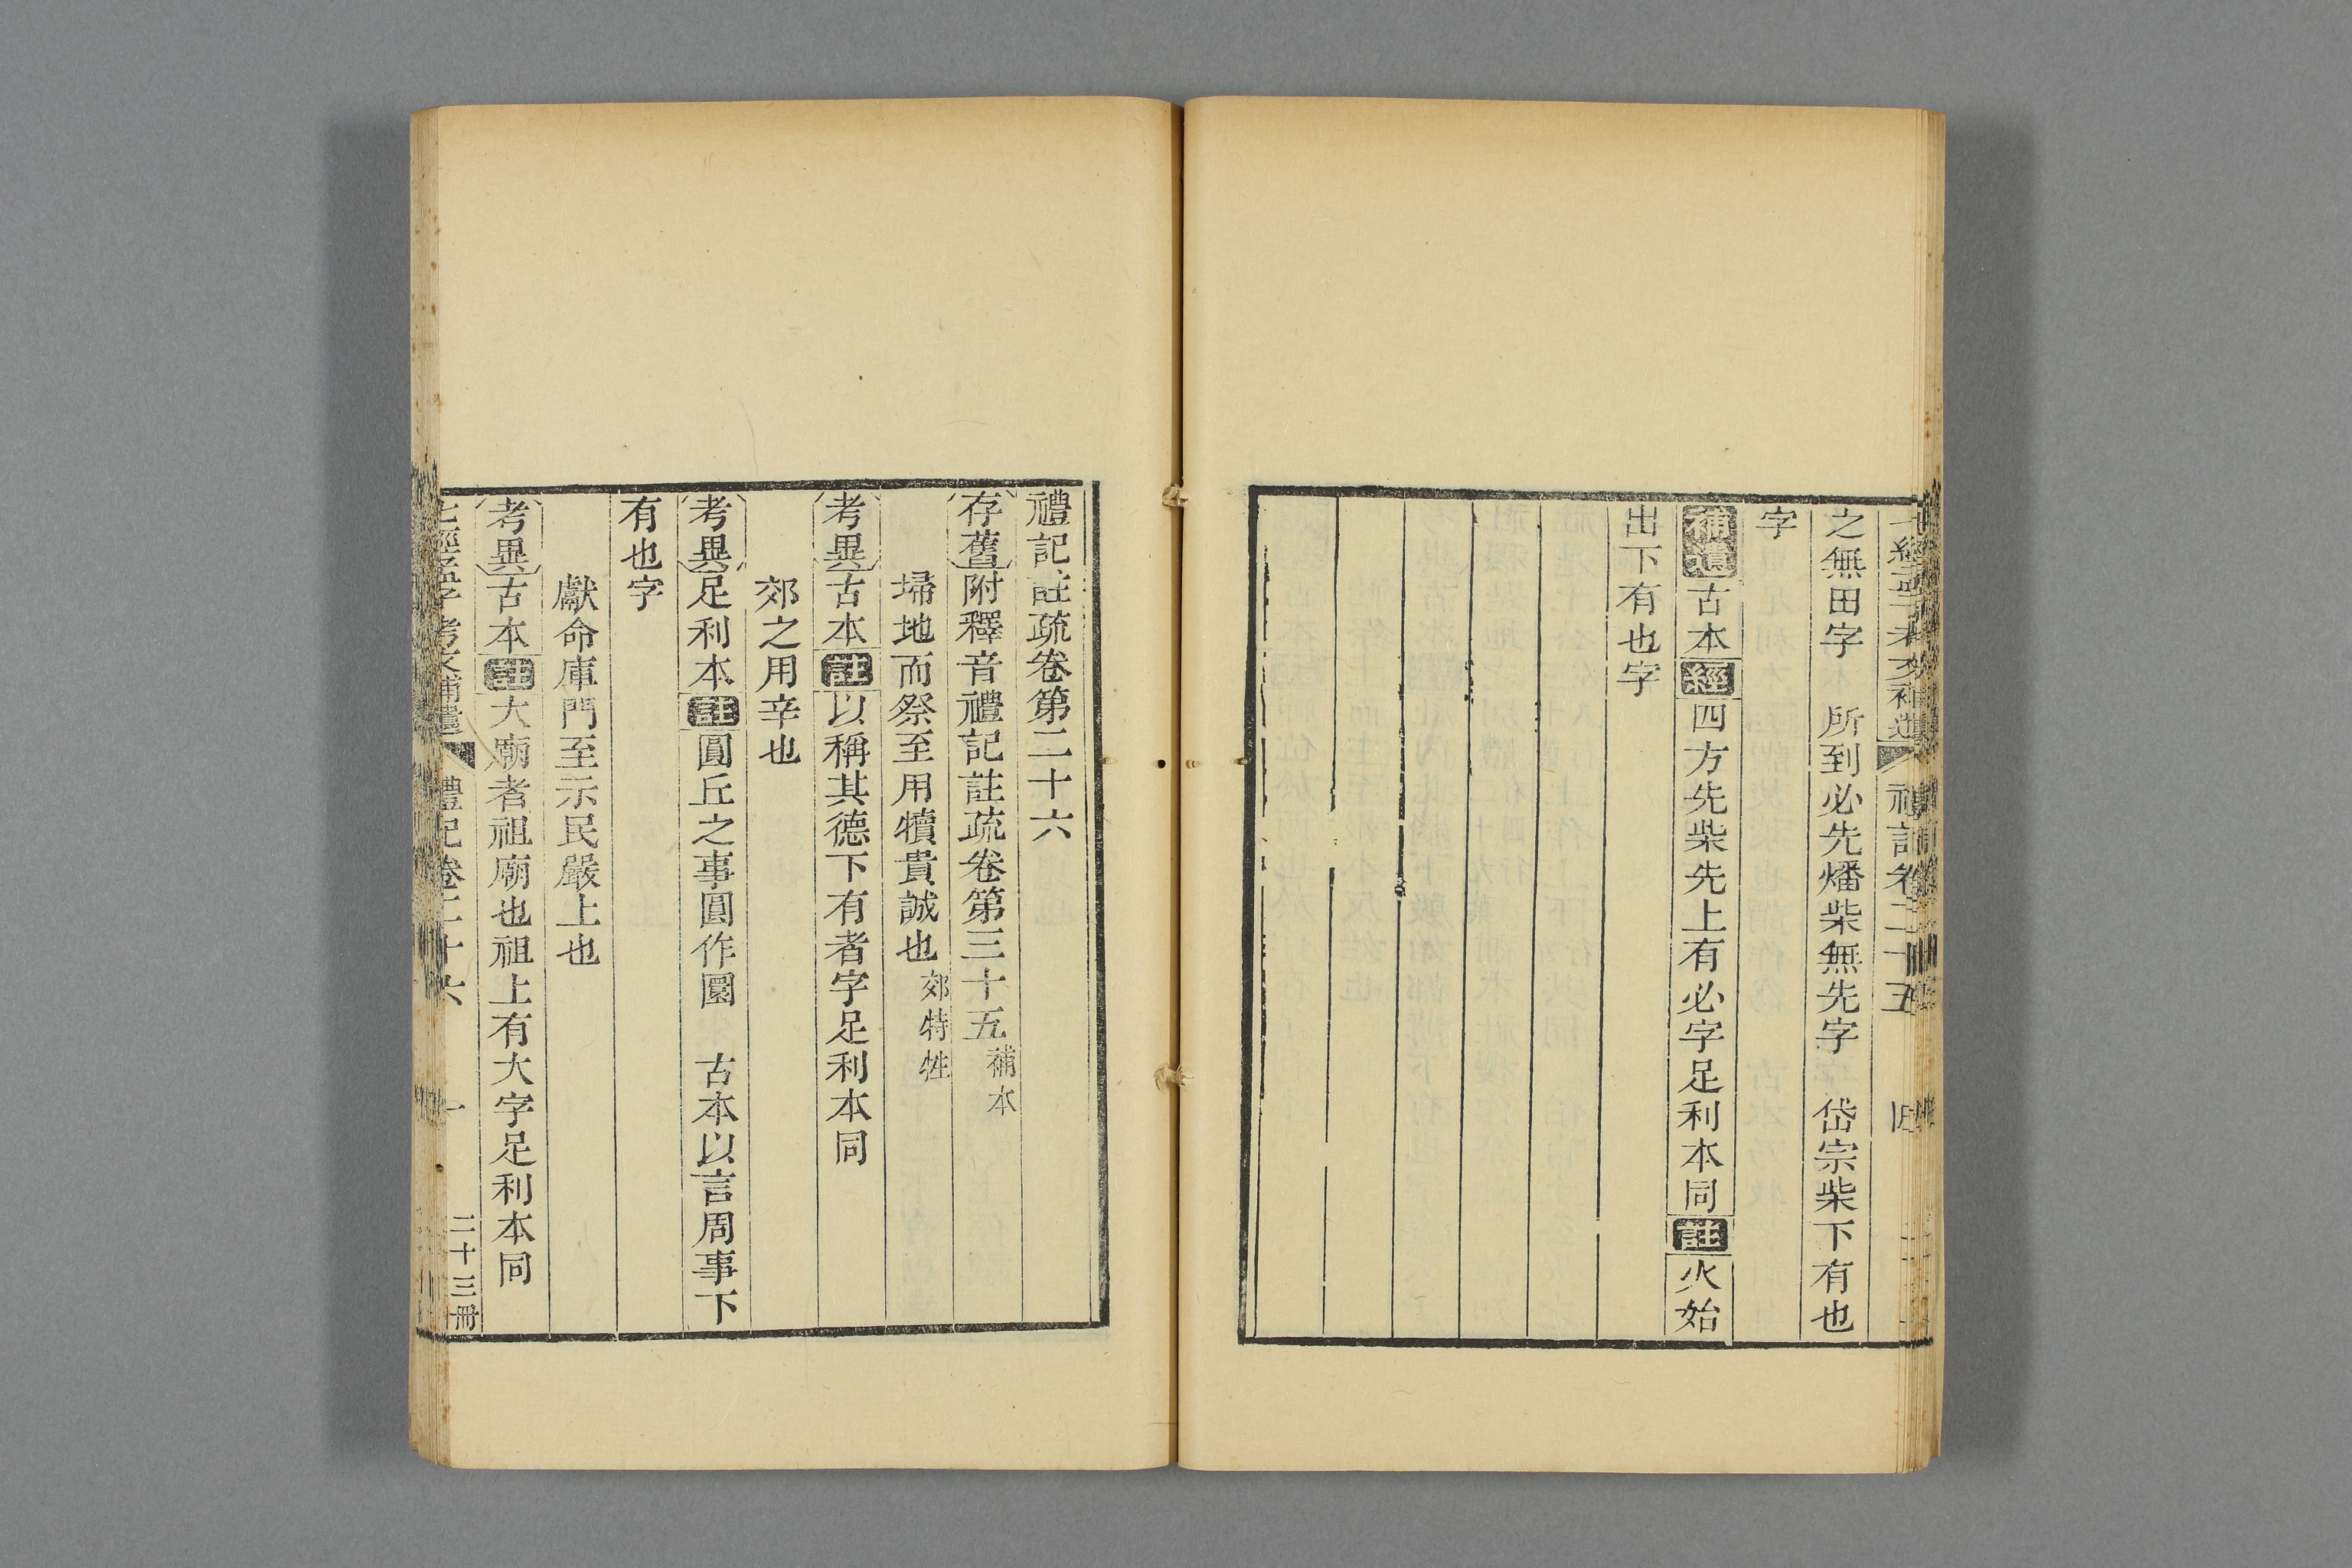 七經孟子考文補遺 禮記卷二十五 四
之無田字 所到必先燔柴無先字 岱宗柴下有也
字
補遺古本經四方先柴先上有必字足利本同註火始
出下有也字
禮記註疏卷第二十六
存舊附釋音禮記註疏卷第三十五補本
埽地而祭至用犢貴誠也郊特牲
考異古本註以稱其德下有者字足利本同
郊之用辛也
考異足利本註圓丘之事圓作圜 古本以言周事下
有也字
獻命庫門至示民嚴上也
考異古本註大廟者祖廟也祖上有大字足利本同
七經孟子考文補遺 禮記卷二十六 一 二十三冊